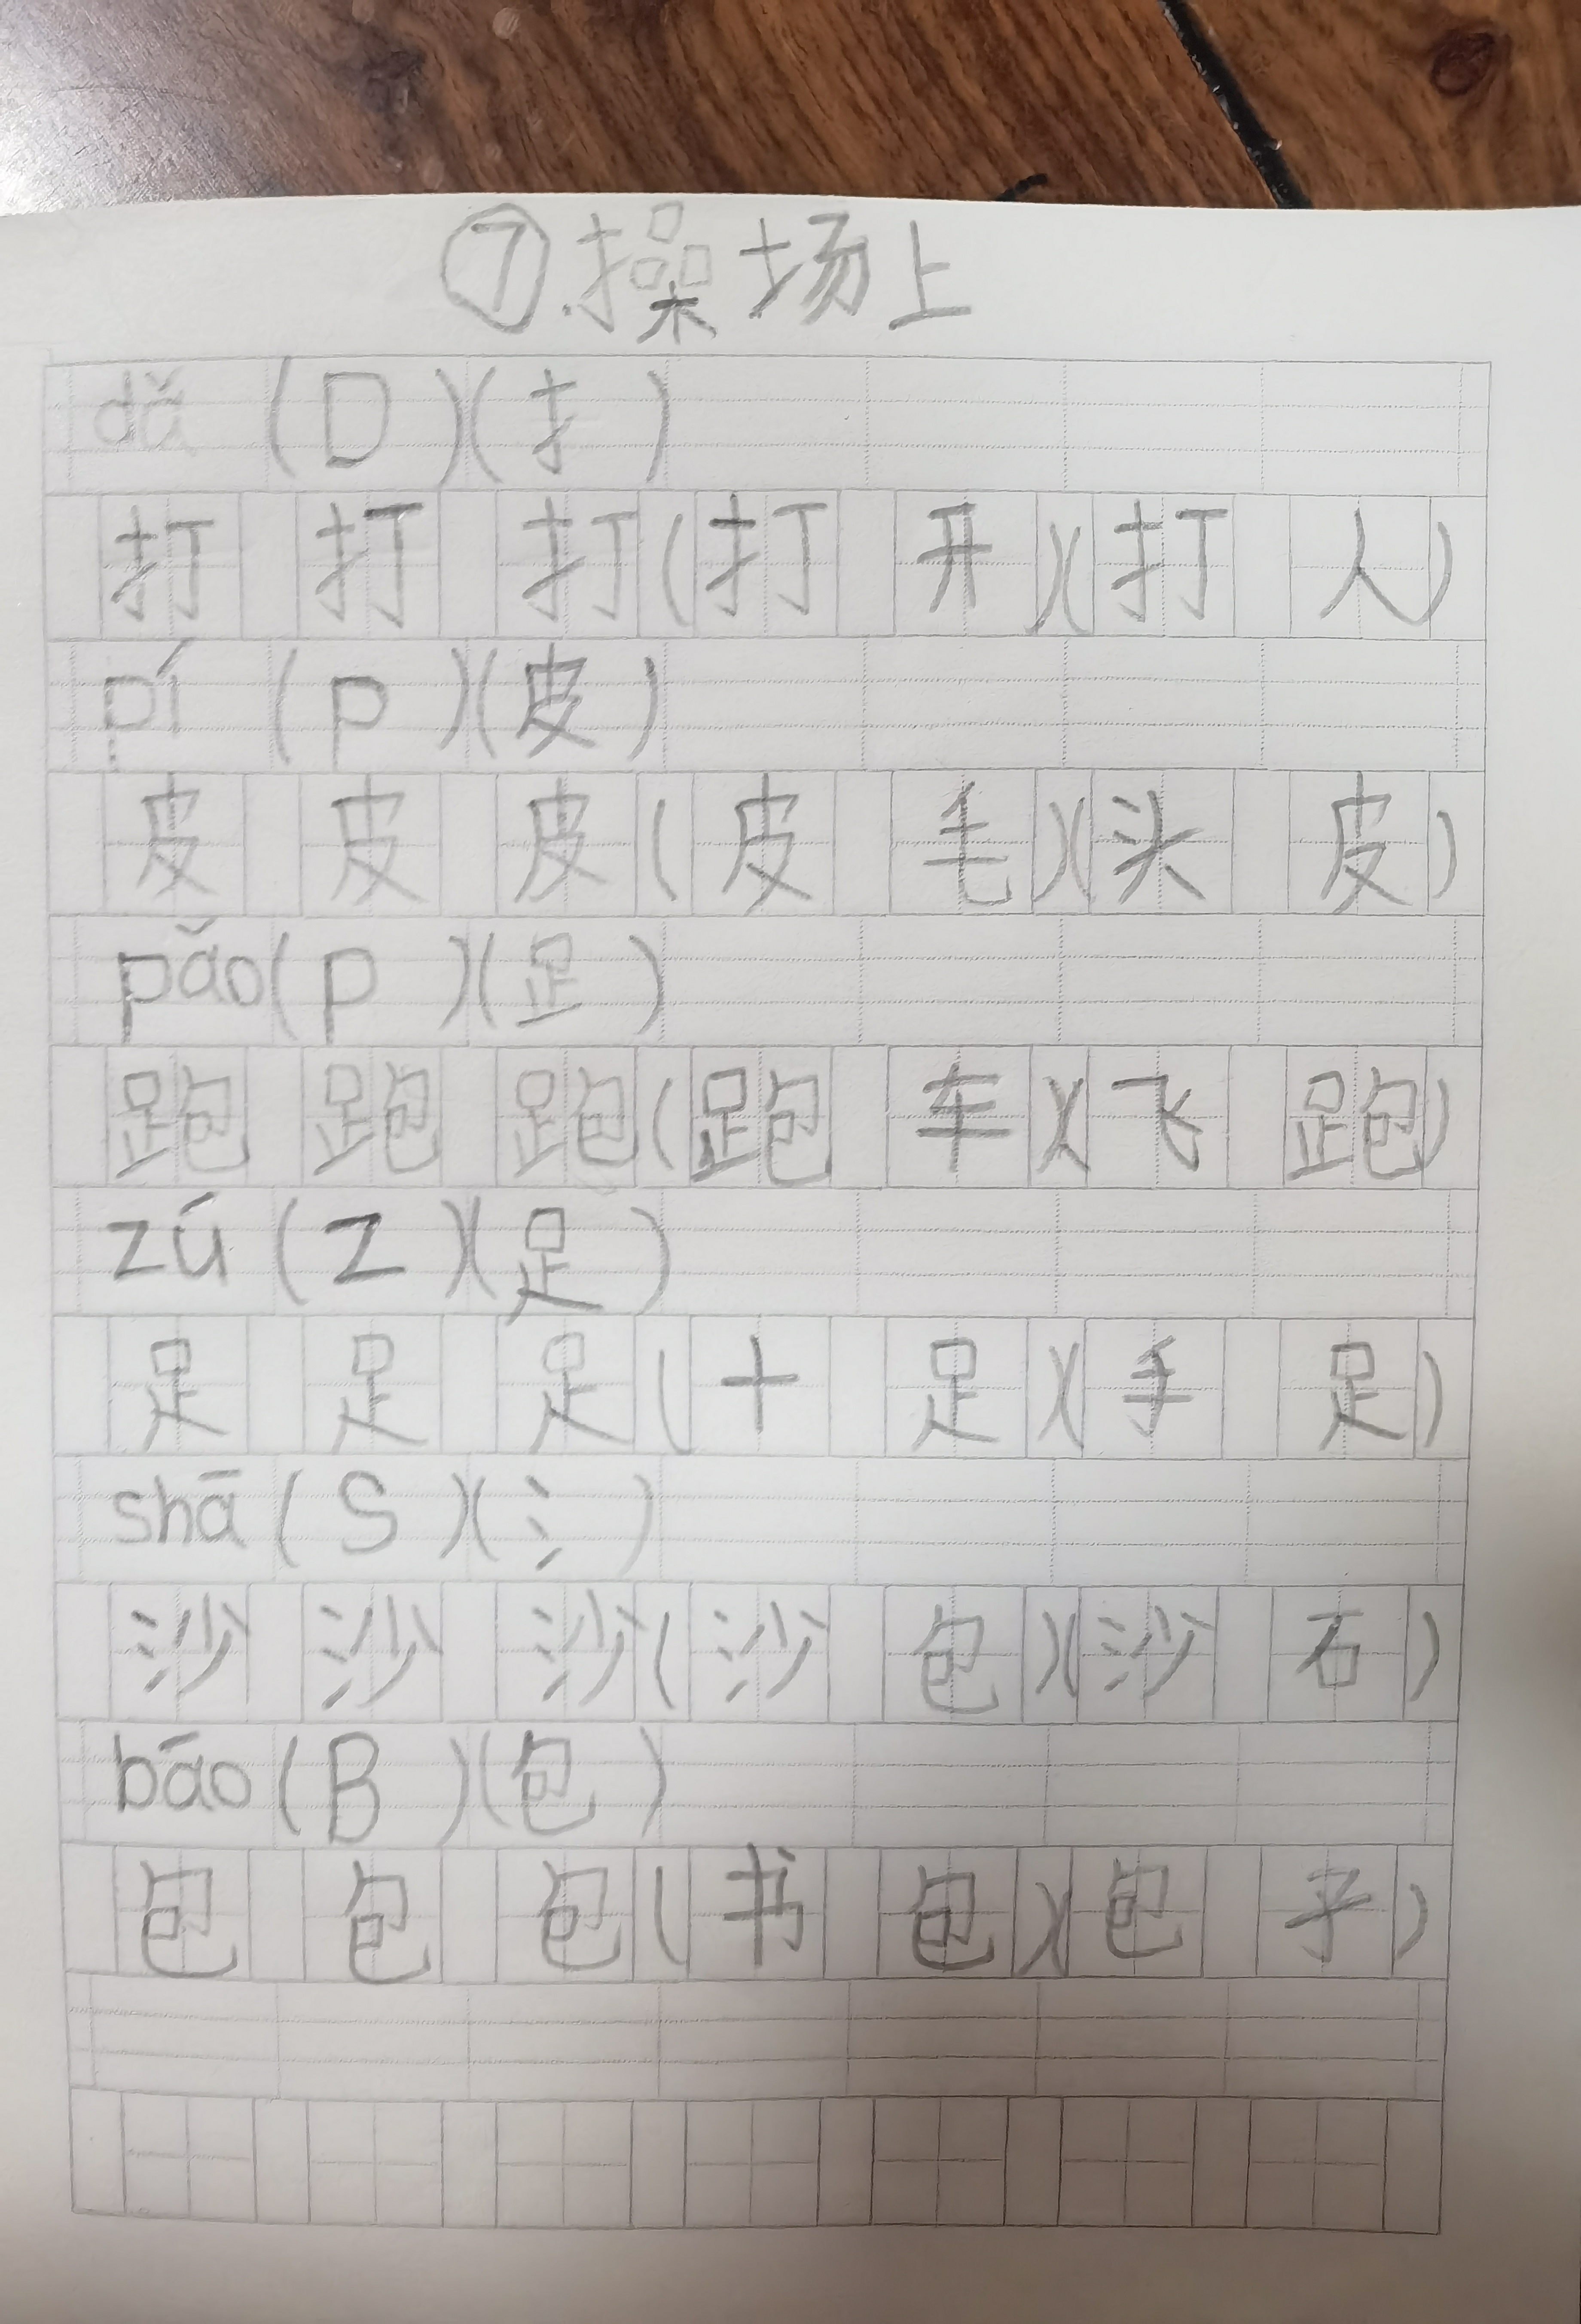 ⑦.操场上
dǎ (D)(扌)
打 打 打(打 开)(打 人)
pí (p)(皮)
皮 皮 皮(皮 毛)(头 皮)
pǎo(p)(𧾷)
跑 跑 跑(跑 车)(飞 跑)
zú(Z)(足)
足 足 足(十 足)(手 足)
shā(S)(氵)
沙 沙 沙(沙 包)(沙 石)
bāo(B)(包)
包 包 包(书 包)(包 子)